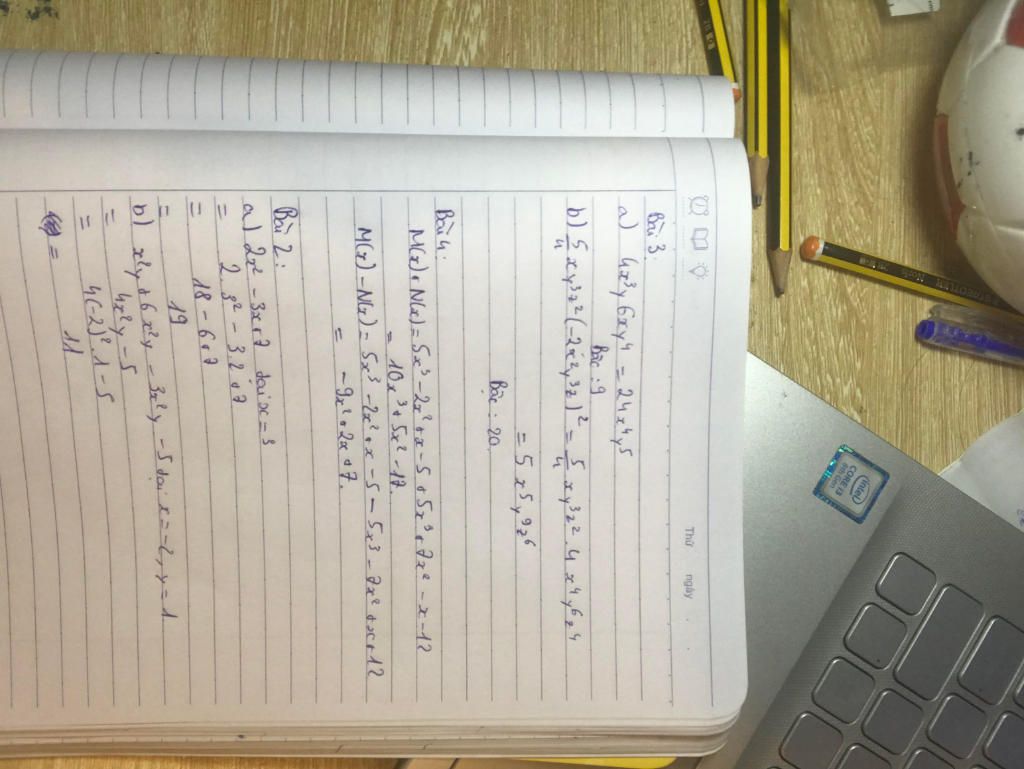 Thứ ngày
Bài 3:
a) 4x³y 6xy⁴ = 24x⁴y⁵
Bậc : 9
b) 5/4 xy³z² (-2x²y³z)² = 5/4 xy³z² . 4x⁴y⁶z⁴
= 5x⁵y⁹z⁶
Bậc : 20
Bài 4:
M(x) + N(x) = 5x³ - 2x² + x - 5 + 5x³ + 7x² - x - 12
= 10x³ + 5x² - 17.
M(x) - N(x) = 5x³ - 2x² + x - 5 - 5x³ - 7x² + x + 12
= -9x² + 2x + 7.
Bài 2:
a) 2x² - 3x + 7 tại x = 3
= 2.3² - 3.2 + 7
= 18 - 6 + 7
= 19
b) x²y + 6x²y - 3x²y - 5 tại x = -2, y = 1
= 4x²y - 5
= 4(-2)².1 - 5
= 11
intel
CORE i3